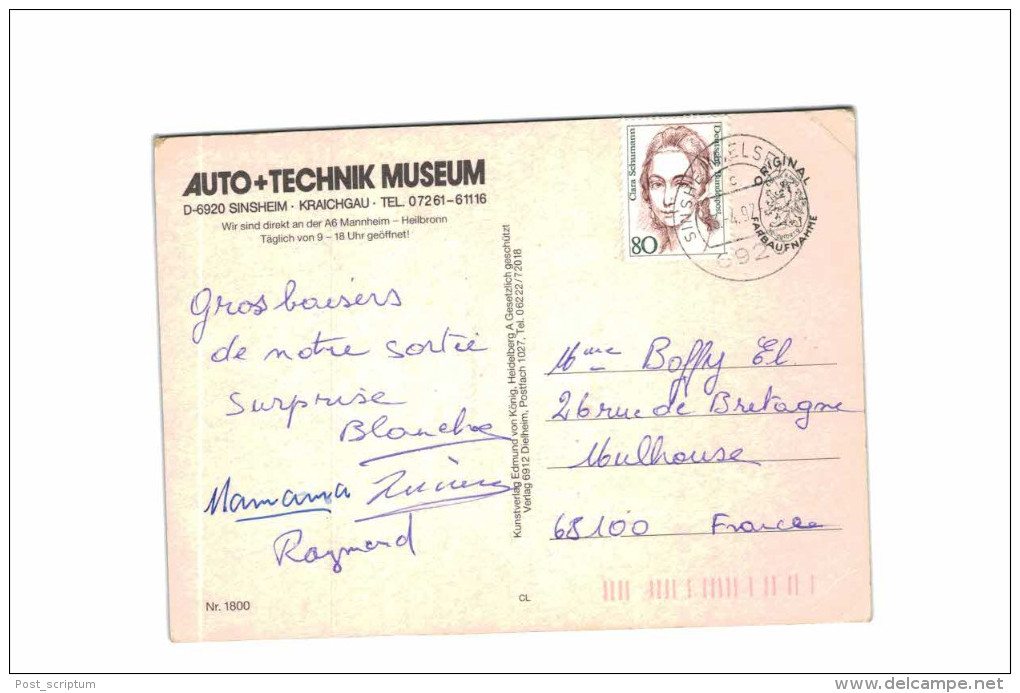 AUTO+TECHNIK MUSEUM
D-6920 SINSHEIM · KRAICHGAU · TEL. 07261-61116
Wir sind direkt an der A6 Mannheim – Heilbronn
Täglich von 9 – 18 Uhr geöffnet!
Gros baisers
de notre sortie
surprise
Blanche
Mamama
Raymond
Nr. 1800
CL
Kunstverlag Edmund von König, Heidelberg A Gesetzlich geschützt
Verlag 6912 Dielheim, Postfach 1027, Tel. 06222/72018
Clara Schumann
Deutsche Bundespost
80
SINSHEIM
c
692
ORIGINAL
FARBAUFNAHME
Mme Boffy El.
26 rue de Bretagne
Mulhouse
68100 France
Post_scriptum
delcampe.net